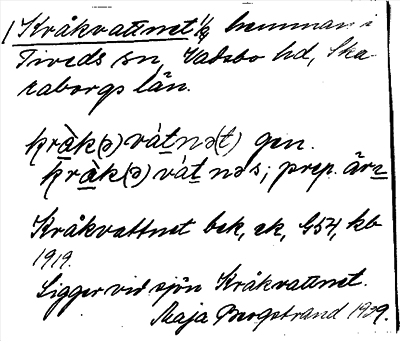 1) Kråkvattnet 1/8 hemman i
Tiveds sn, Vadsbo hd, Ska-
raborgs län.
kràk(ə) vátnə(t) gen.
kràk(ə) vátnəs; prep. är
Kråkvattnet bek, ek, G54, kb
1919.
Ligger vid sjön Kråkvattnet.
Maja Bergstrand 1929.